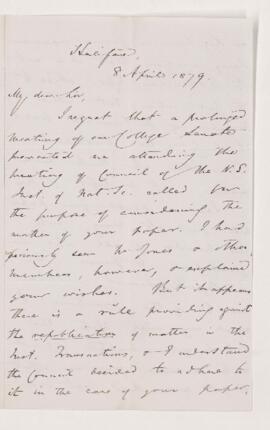 Halifax,
8 April 1879.
My dear Sir,
I regret that a prolonged
meeting of our College Senate
prevented me attending the
meeting of Council of the N.S.
Inst. of Nat. Sc. called for
the purpose of considering the
matter of your paper. I had
previously seen Mr Jones & other
members, however, & explained
your wishes. But it appears
there is a rule providing against
the republication of matter in the
Inst. Transactions, & I understand
the Council decided to adhere to
it in the case of your paper.